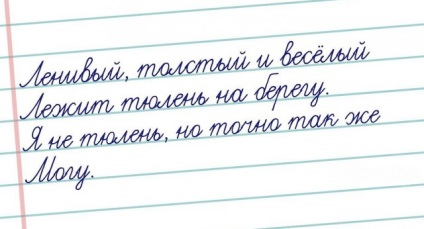 Ленивый, толстый и весёлый
Лежит тюлень на берегу.
Я не тюлень, но точно так же
Могу.